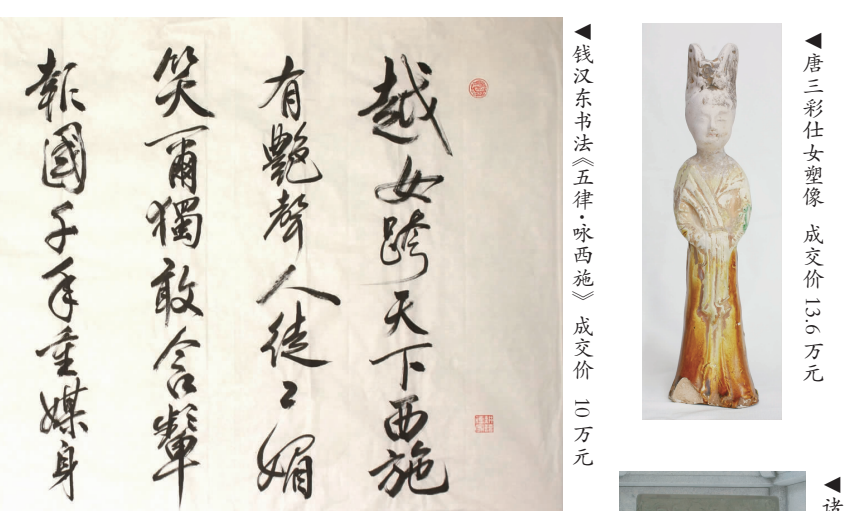 越女跨天下西施
有艷聲人徒〻媚
笑爾獨敢含
報國千年重媒身
◀钱汉东书法《五律·咏西施》 成交价 10万元
◀唐三彩仕女塑像 成交价13.6万元
◀诸